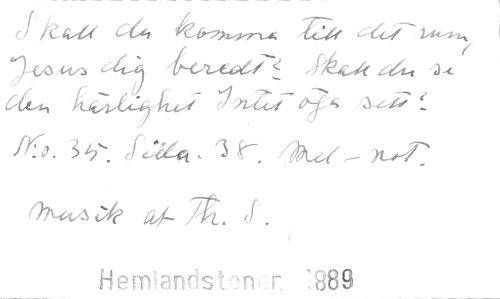 Skall du komma till det rum,
Jesus dig beredt? Skall du se
den härlighet Intet öga sett?
N:o. 35. Sida. 38. Mel-not.
Musik af Th. S.
Hemlandstoner 1889